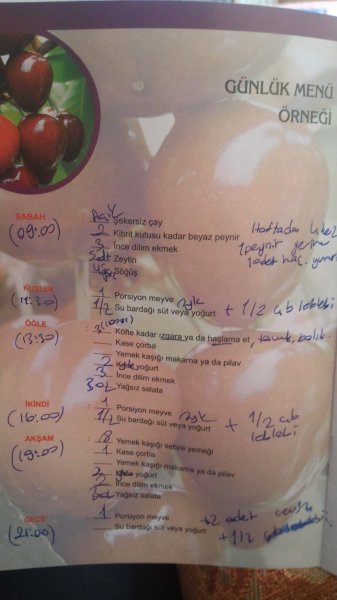 GÜNLÜK MENÜ
ÖRNEĞİ
SABAH
(09:00)
Açık Şekersiz çay
2 Kibrit kutusu kadar beyaz peynir
3 İnce dilim ekmek
5adt Zeytin
Söğüş
Haftada
1 peynir yerine
1 adet haş.
KUŞLUK
(11:30)
1 Porsiyon meyve
1/2 Su bardağı süt veya yoğurt + 1/2 çb leblebi
ÖĞLE
(13:30)
3 Köfte kadar ızgara ya da haşlama et, tavuk, balık
Kase çorba
Yemek kaşığı makarna ya da pilav
2 yoğurt
3 İnce dilim ekmek
Bol Yağsız salata
İKİNDİ
(16:00)
1 Porsiyon meyve
1/2 Su bardağı süt veya yoğurt + 1/2 çb
leblebi
AKŞAM
(19:00)
8 Yemek kaşığı sebze yemeği
1 Kase çorba
Yemek kaşığı makarna ya da pilav
2 yoğurt
2 İnce dilim ekmek
Bol Yağsız salata
GECE
(21:00)
1 Porsiyon meyve +2 adet ceviz
Su bardağı süt veya yoğurt +1/2